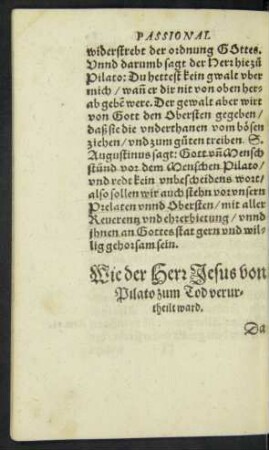 PASSIONAL
widerstrebt der ordnung GOttes.
Vnnd darumb sagt der Herr hie zů
Pilato: Du hettest kein gwalt vber
mich / wañ er dir nit von oben her-
ab gebē were. Der gewalt aber wirt
von Gott den Obersten gegeben /
daß sie die vnderthanen vom bösen
ziehen / vnd zum gůten treiben. S.
Augustinus sagt: Gott vñ Mensch
stůnd vor dem Menschen Pilato /
vnd redt kein vnbescheidens wort /
also sollen wir auch stehn vor vnsern
Prelaten vnnd Obersten / mit aller
Reuerentz vnd ehrerbietung / vnnd
jhnen an Gottes stat gern vnd wil-
lig gehorsam sein.
Wie der Herr Jesus von
Pilato zum Tod verur-
theilt ward.
Da